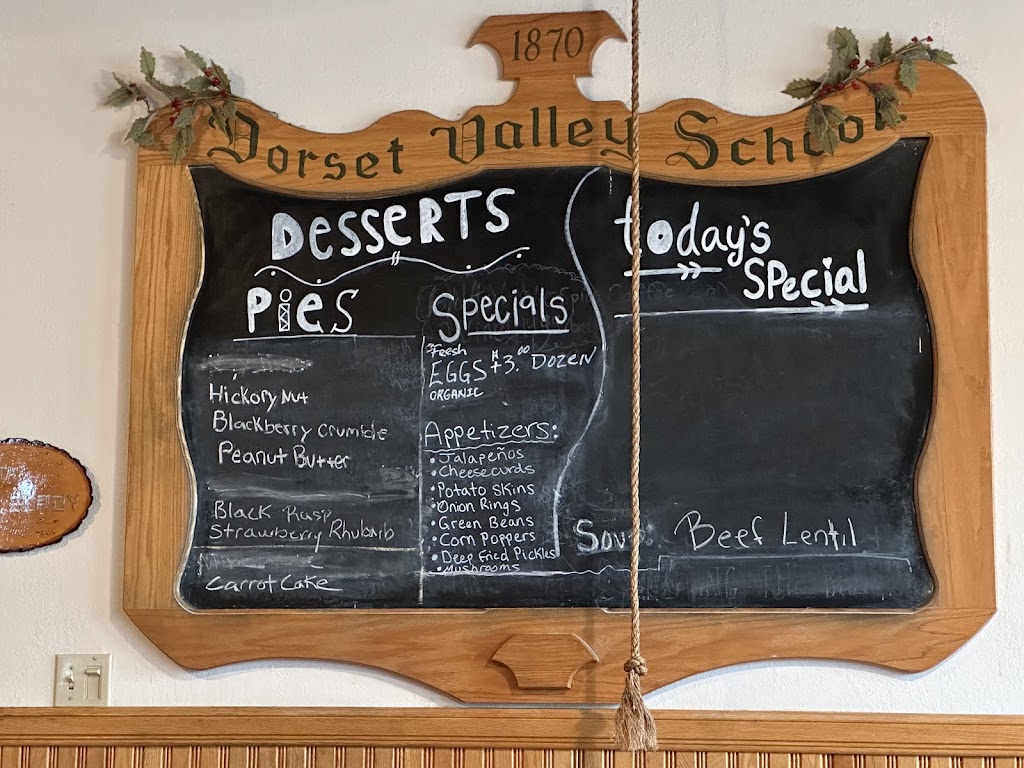 1870
Dorset Valley School
Desserts
Pies
Hickory Nut
Blackberry Crumble
Peanut Butter
Black Rasp
Strawberry Rhubarb
Carrot Cake
Specials
Fresh
EGGS $3.00 DOZEN
ORGANIC
Appetizers:
• Jalapeños
• Cheesecurds
• Potato Skins
• Onion Rings
• Green Beans
• Corn Poppers
• Deep Fried Pickles
• Mushrooms
today's
Special
Soup: Beef Lentil